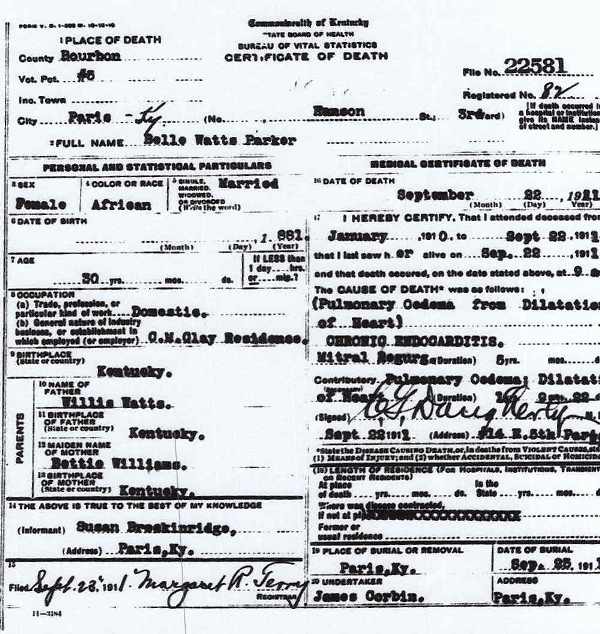 FORM V. S. 1-
Commonwealth of Kentucky
STATE BOARD OF HEALTH
BUREAU OF VITAL STATISTICS
CERTIFICATE OF DEATH
1 PLACE OF DEATH
County Bourbon
Vot. Pct. #5
Inc. Town
City Paris - Ky (No. Hanson St.; 3rd ard)
File No. 22581
Registered No. 82
[If death occurred in
a hospital or institution
give its NAME instead
of street and number.]
2 FULL NAME Belle Watts Parker
PERSONAL AND STATISTICAL PARTICULARS
3 SEX
Female
4 COLOR OR RACE
African
5 SINGLE,
MARRIED,
WIDOWED,
OR DIVORCED
(Write the word)
Married
6 DATE OF BIRTH
1 881.
(Month) (Day) (Year)
7 AGE
30 yrs. mos. ds.
If LESS than
1 day hrs.
or min.?
8 OCCUPATION
(a) Trade, profession, or
particular kind of work Domestic.
(b) General nature of industry
business, or establishment in
which employed (or employer) C.M.Clay Residence.
9 BIRTHPLACE
(State or country)
Kentucky.
PARENTS
10 NAME OF
FATHER
Willis Watts.
11 BIRTHPLACE
OF FATHER
(State or country)
Kentucky.
12 MAIDEN NAME
OF MOTHER
Bettie Williams.
13 BIRTHPLACE
OF MOTHER
(State or country)
Kentucky.
14 THE ABOVE IS TRUE TO THE BEST OF MY KNOWLEDGE
(Informant) Susan Breskinridge,
(Address) Paris,Ky.
15
Filed Sept. 23, 1911 Margaret R. Terry
REGISTRAR
11-3184
MEDICAL CERTIFICATE OF DEATH
16 DATE OF DEATH
September 22 1911
(Month) (Day) Year)
17 I HEREBY CERTIFY, That I attended deceased from
January 1910. to Sept 22 1911
that I last saw h er alive on Sep. 22 1911
and that death occured, on the date stated above, at 9 a
The CAUSE OF DEATH* was as follows:
(Pulmonary Oedema from Dilatation
of Heart)
CHRONIC ENDOCARDITIS.
Mitral Regurg. (Duration) 5 yrs. mos.
Contributory Pulmonary Oedema; Dilatat
of Heart (Duration)
(Signed)
Sept 22 1911 (Address) 514 E.5th
*State the DISEASE CAUSING DEATH, or, in deaths from VIOLENT CAUSES, state
(1) MEANS OF INJURY; and (2) whether ACCIDENTAL, SUICIDAL or HOMICIDAL
18 LENGTH OF RESIDENCE (FOR HOSPITALS, INSTITUTIONS, TRANSIENTS
OR RECENT RESIDENTS)
At place In the
of death yrs. mos. ds. State yrs. mos.
Where was disease contracted,
if not at
Former or
usual residence
19 PLACE OF BURIAL OR REMOVAL
Paris,Ky.
DATE OF BURIAL
Sep. 25 1911
20 UNDERTAKER
James Corbin.
ADDRESS
Paris,Ky.